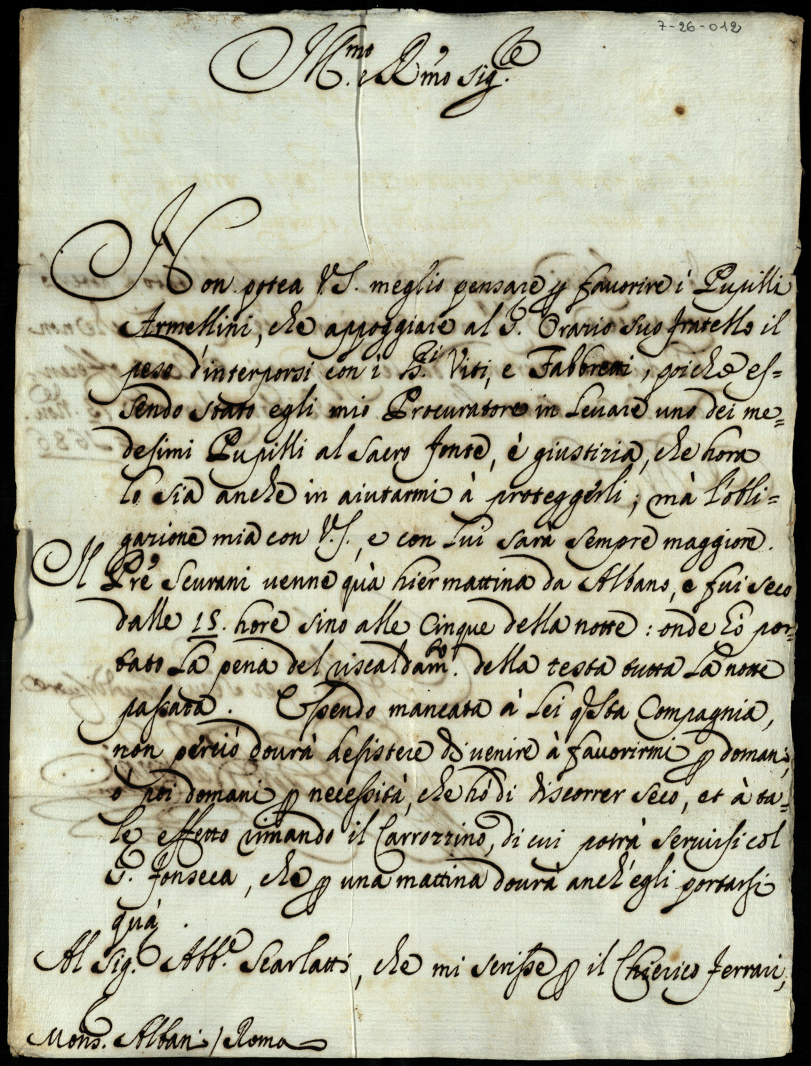 7-26-012
Ill.mo e R.mo Sig.re
Non potea V.S. meglio pensare p favorire i Pupilli
Armellini, che appoggiare al S. Orazio suo fratello il
peso d'interporsi con i SS.ri Viti, e Fabbretti, poiche es-
sendo stato egli mio Procuratore in Levare uno dei me-
desimi Pupilli al Sacro fonte, è giustizia, che hora
lo sia anche in aiutarmi à proteggerli; mà l'obli-
gazione mia con V.S., e con Lui sarà sempre maggiore.
Il Pre Seurani venne quà hier mattina da Albano, e fui seco
dalle 15. hore sino alle Cinque della notte: onde hò por-
tato La pena del riscaldam.to della testa tutta La notte
passata. Essendo mancata à Lei qsta Compagnia,
non perciò dourà desistere di venire à favorirmi p domani,
ò poi domani p necessità, che hò di discorrer seco, et à ta-
le effetto rimando il Carrozzino, di cui potrà servirsi col
S. Fonseca, che p una mattina dourà anch'egli portarsi
quà.
Al Sig. Abb.e Scarlatti, che mi scrisse p il Chierico Ferrari,
Mons. Albani / Roma